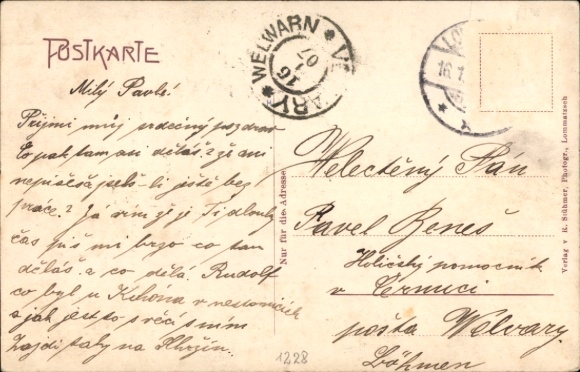 POSTKARTE
WELWARN * VELVARY *
16
07
16.1
Milý Pavle!
Přijmi můj srdečný pozdrav
Co pak tam asi děláš? že ani
nepíšeš jseš-li ještě bez
práce? Já vím že je Ti dlouhý
čas piš mi brzo co tam
děláš a co dělá Rudolf
co byl u
a jak jest to s věcí s ním
Zajdi taky na
Nur für die Adresse
Velectěný Pán
Pavel Beneš
Holičský pomocník
v Černuci
pošta Welvary
Böhmen
Verlag v. R. Stühmer, Photogr., Lommatzsch
1228